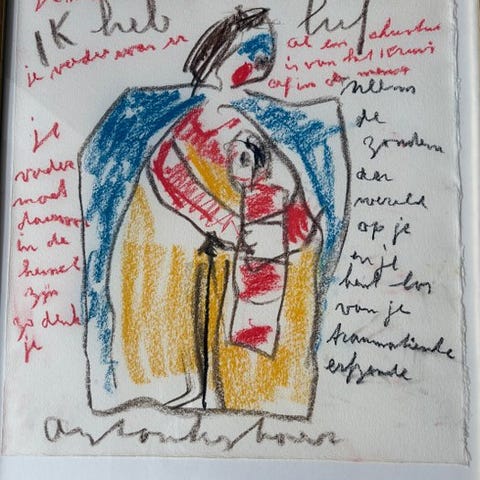 IK heb lief
je verder
al een christus
is van het kruis
af in de
Neem
de
zonden
der
wereld
op je
en je
bent los
van je
traumatische
erfzonde
je
vader
moet
daarom
in de
hemel
zijn
zo denk
je